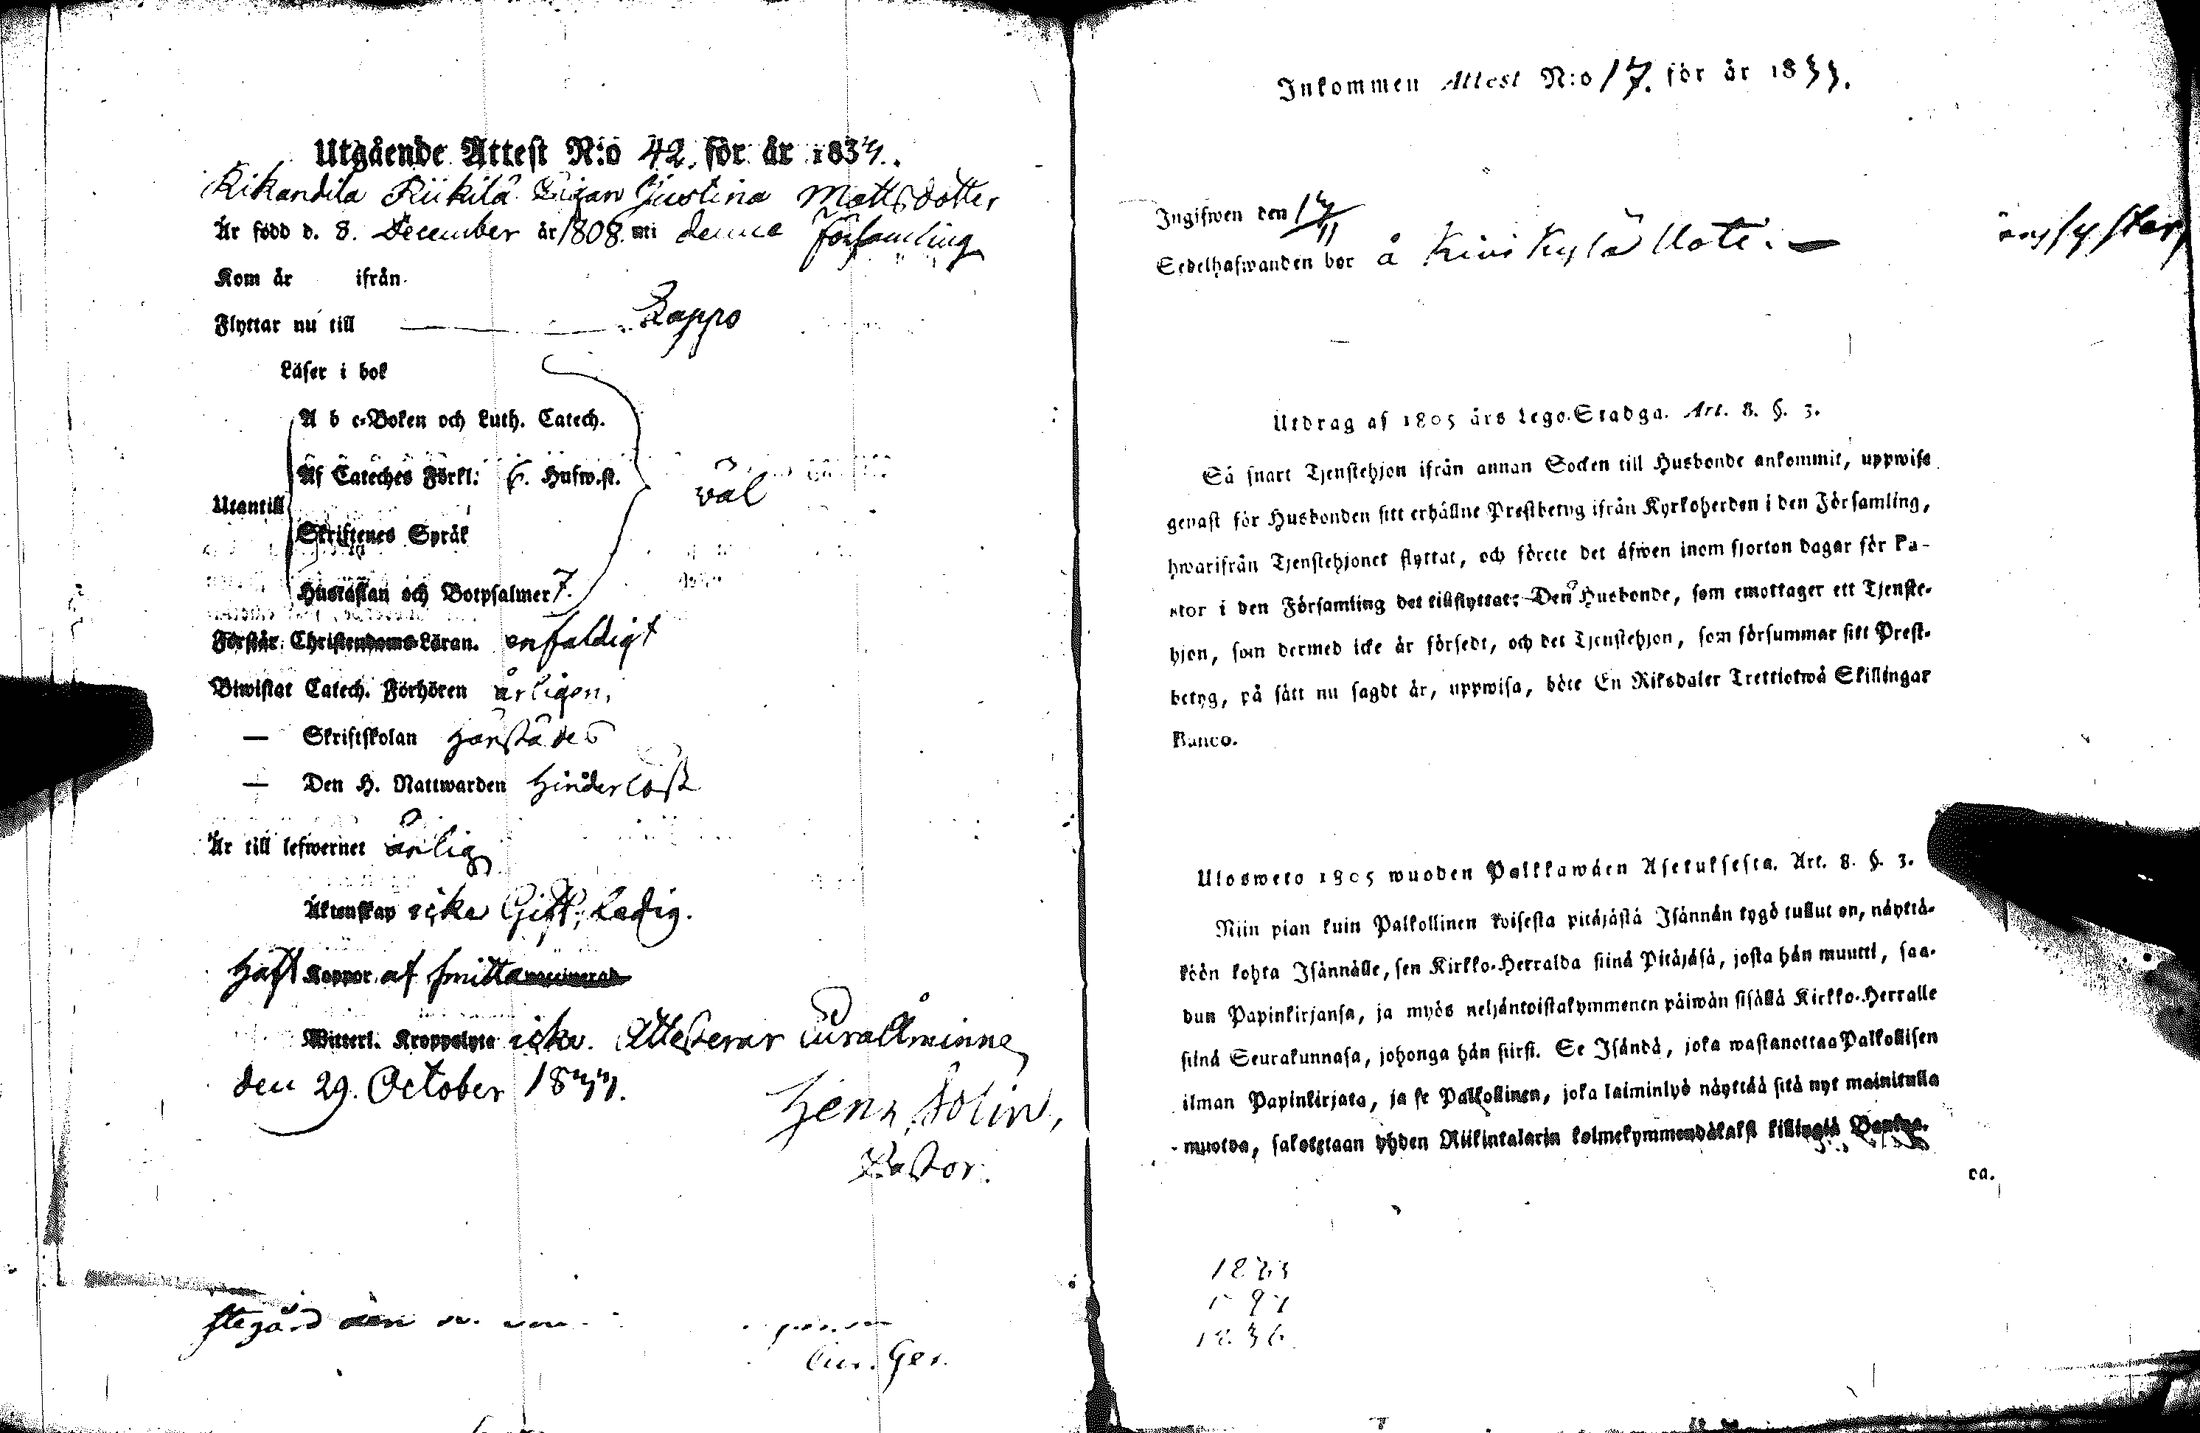 Utgående Attest N:o 42. för år 1834.
Kikandila Riikilä Pigan Justina Mattsdotter
Är född d. 8. December år 1808. uti denna Församling
Kom år ifrån
Flyttar nu till Lappo
Läser i bok
A b c-Boken och Luth. Catech.
Af Cateches Förkl: 6. Hufw.st.
väl
Utantill
Skriftenes Språk
Hustaflan och Botpsalmer 7.
Förstår Christendoms-Läran. enfaldigt
Biwistat Catech. Förhören årligen,
— Skriftskolan härstädes
— Den H. Nattwarden Hinderlöst
Är till lefwernet ärlig
Äktenskap icke Gift, Ledig.
Haft Koppor af smitta vaccinerad
Witterl. Kroppslyte icke. Attesterar
den 29. October 1834.
Pastor.
Inkommen Attest N:o 17. för år 1833.
Ingifwen den 17/11
Sedelhafwanden bor å Kivikylä Rote. —
Utdrag af 1805 års Lego-Stadga. Art. 8. §. 3.
Så snart Tjenstehjon ifrån annan Socken till Husbonde ankommit, uppwise
genast för Husbonden sitt erhållne Prestbetyg ifrån Kyrkoherden i den Församling,
hwarifrån Tjenstehjonet flyttat, och förete det äfwen inom fjorton dagar för Pa-
stor i den Församling det tillflyttat: Den Husbonde, som emottager ett Tjenste-
hjon, som dermed icke är försedt, och det Tjenstehjon, som försummar sitt Prest-
betyg, på sätt nu sagdt är, uppwisa, böte En Riksdaler Trettiotwå Skillingar
Banco.
Ulosweto 1805 wuoden Palkkawäen Asetuksesta. Art. 8. §. 3.
Niin pian kuin Palkollinen toisesta pitäjästä Isännän tygö tullut on, näyttä-
köön kohta Isännälle, sen Kirkko-Herralda siinä Pitäjäsä, josta hän muutti, saa-
dun Papinkirjansa, ja myös neljäntoistakymmenen päiwän sisällä Kirkko-Herralle
siinä Seurakunnasa, johonga hän siirsi. Se Isändä, joka wastanottaa Palkollisen
ilman Papinkirjata, ja se Palkollinen, joka laiminlyö näyttää sitä nyt mainitulla
muotoa, sakotetaan yhden Riikintalarin kolmekymmendäkaksi killingiä Bankoa.
ca.
1836.